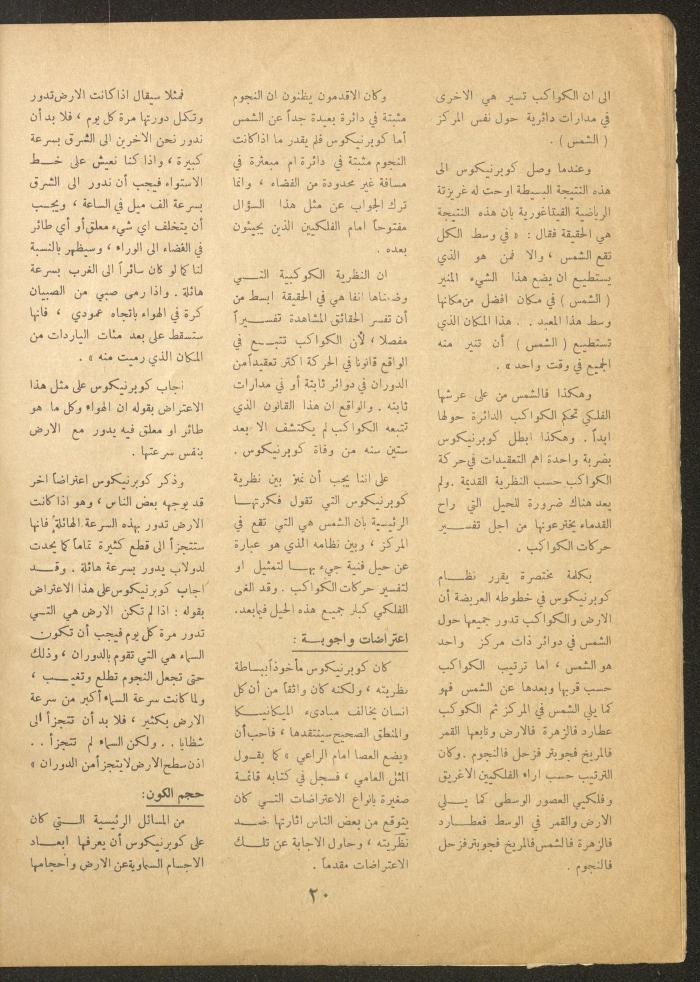 الى ان الكواكب تسير هي الاخرى
في مدارات دائرية حول نفس المركز
( الشمس ) .
وعندما وصل كوبرنيكوس الى
هذه النتيجة البسيطة اوحت له غريزتة
الرياضية الفيتاغورية بان هذه النتيجة
هي الحقيقة فقال : « في وسط الكل
تقع الشمس ، والا فمن هو الذي
يستطيع ان يضع هذا الشيء المنير
( الشمس ) في مكان افضل من مكانها
وسط هذا المعبد . . هذا المكان الذي
تستطيع ( الشمس ) أن تنير منه
الجميع في وقت واحد » .
وهكذا فالشمس من على عرشها
الفلكي تحكم الكواكب الدائرة حولها
ابداً . وهكذا ابطل كوبرنيكوس
بضربة واحدة اهم التعقيدات في حركة
الكواكب حسب النظرية القديمة . ولم
يعد هناك ضرورة للحيل التي راح
القدماء يخترعونها من اجل تفسير
حركات الكواكب .
بكلمة مختصرة يقرر نظام
كوبرنيكوس في خطوطه العريضة أن
الارض والكواكب تدور جميعها حول
الشمس في دوائر ذات مركز واحد
هو الشمس ، اما ترتيب الكواكب
حسب قربها وبعدها عن الشمس فهو
كما يلي الشمس في المركز ثم الكوكب
عطارد فالزهرة فالارض وتابعها القمر
فالمريخ فجوبتر فزحل فالنجوم . وكان
الترتيب حسب اراء الفلكيين الاغريق
وفلكيي العصور الوسطى كما يلي
الارض والقمر في الوسط فعطارد
فالزهرة فالشمس فالمريخ فجوبتر فزحل
فالنجوم .
وكان الاقدمون يظنون ان النجوم
مثبتة في دائرة بعيدة جداً عن الشمس
أما كوبرنيكوس فلم يقدر ما اذا كانت
النجوم مثبتة في دائرة ام مبعثرة في
مسافة غير محدودة من الفضاء ، وانما
ترك الجواب عن مثل هذا السؤال
مفتوحاً امام الفلكيين الذين يجيئون
بعده .
ان النظرية الكوكبية التي
وضعناها انفا هي في الحقيقة ابسط من
أن تفسر الحقائق المشاهدة تفسيراً
مفصلا ، لأن الكواكب تتبع في
الواقع قانونا في الحركة اكثر تعقيداً من
الدوران في دوائر ثابتة أو في مدارات
ثابته . والواقع ان هذا القانون الذي
تتبعه الكواكب لم يكتشف الا بعد
ستين سنه من وفاة كوبرنيكوس .
على اننا يجب أن نميز بين نظرية
كوبرنيكوس التي تقول فكرتها
الرئيسية بان الشمس هي التي تقع في
المركز ، وبين نظامه الذي هو عبارة
عن حيل فنية جيء بها لتمثيل او
لتفسير حركات الكواكب . وقد الغى
الفلكي كبلر جميع هذه الحيل فيما بعد .
اعتراضات واجوبة :
كان كوبرنيكوس مأخوذاً ببساطة
نظريته ، ولكنه كان واثقاً من أن كل
انسان يخالف مبادىء الميكانيكا
والمنطق الصحيح سينتقدها ، فاحب أن
«يضع العصا امام الراعي » كما يقول
المثل العامي ، فسجل في كتابه قائمة
صغيرة بانواع الاعتراضات التي كان
يتوقع من بعض الناس اثارتها ضد
نظريته ، وحاول الاجابة عن تلك
الاعتراضات مقدماً .
فمثلا سيقال اذا كانت الارض تدور
وتكمل دورتها مرة كل يوم ، فلا بد أن
ندور نحن الاخرين الى الشرق بسرعة
كبيرة ، واذا كنا نعيش على خط
الاستواء فيجب أن ندور الى الشرق
بسرعة الف ميل في الساعة ، ويجب
أن يتخلف اي شيء معلق أو أي طائر
في الفضاء الى الوراء ، وسيظهر بالنسبة
لنا كما لو كان سائراً الى الغرب بسرعة
هائلة . واذا رمى صبي من الصبيان
كرة في الهواء باتجاه عمودي ، فانها
ستسقط على بعد مئات الياردات من
المكان الذي رميت منه » .
اجاب كوبرنيكوس على مثل هذا
الاعتراض بقوله ان الهواء وكل ما هو
طائر او معلق فيه يدور مع الارض
بنفس سرعتها .
وذكر كوبرنيكوس اعتراضاً اخر
قد يوجهه بعض الناس ، وهو اذا كانت
الارض تدور بهذه السرعة الهائلة فانها
ستتجزأ الى قطع كثيرة تماماً كما يحدث
لدولاب يدور بسرعة هائلة . وقد
اجاب كوبرنيكوس على هذا الاعتراض
بقوله : اذا لم تكن الارض هي التي
تدور مرة كل يوم فيجب أن تكون
السماء هي التي تقوم بالدوران ، وذلك
حتى تجعل النجوم تطلع وتغيب ،
ولما كانت سرعة السماء أكبر من سرعة
الارض بكثير ، فلا بد أن تتجزأ الى
شظايا . . ولكن السماء لم تتجزأ . .
اذن سطح الارض لا يتجزأ من الدوران »
حجم الكون :
من المسائل الرئيسية التي كان
على كوبرنيكوس أن يعرفها ابعاد
الاجسام السماوية عن الارض واحجامها
٢٠